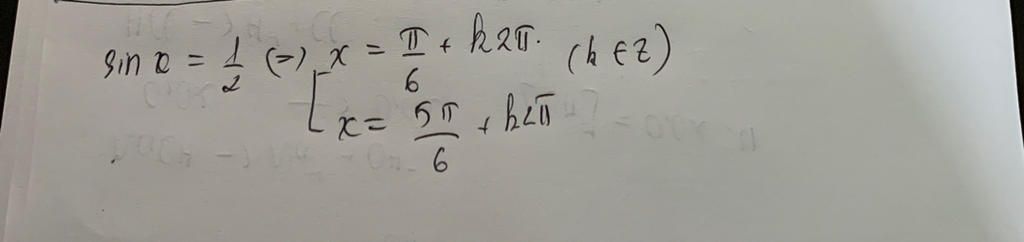 sin x = 1/2 (=) [ x = π/6 + k2π. (k ∈ Z)
x = 5π/6 + k2π